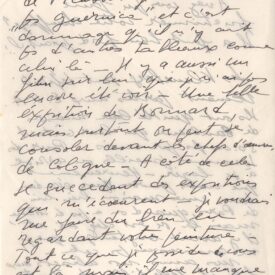 de
"les guernica" et c'est
dommage qu'il n'y ait
pas d'autres tableaux comme
celui là - Il y a aussi un
film sur lui que je n'ai pas
encore été voir - Une belle
exposition de Bonnard,
mais partout on peut se
consoler devant les chefs d'œuvre
de Cologne - A côté de cela
se succèdent des expositions
qui m'écœurent - je voudrais
me faire du bien en
regardant votre peinture
Tout ce que je possède
est là mais il me manque